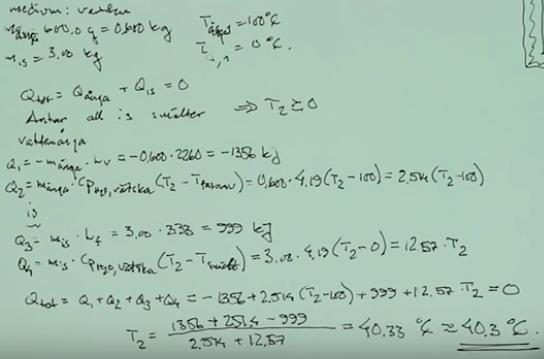 medium: vatten
många 600.0 g = 0,600 kg   Tånga = 100°C
mis = 3,00 kg   Tis,1 = 0 °C.
Qtot = Qånga + Qis = 0
Antar all is smälter ⇒ T2 ≥ 0
vattenånga
Q1 = -många · Lv = -0,600 · 2260 = -1356 kJ
Q2 = många · Cp H2O,vätska (T2 - T) = 0,600 · 4,19 (T2 - 100) = 2,514 (T2 - 100)
is
Q3 = mis · Lf = 3,00 · 333 = 999 kJ
Q4 = mis · Cp H2O,vätska (T2 - Tsmält) = 3,00 · 4,19 (T2 - 0) = 12.57 · T2
Qtot = Q1 + Q2 + Q3 + Q4 = -1356 + 2,514 (T2 - 100) + 999 + 12.57 T2 = 0
T2 = (1356 + 251.4 - 999) / (2.514 + 12.57) = 40.33 °C ≈ 40.3 °C.